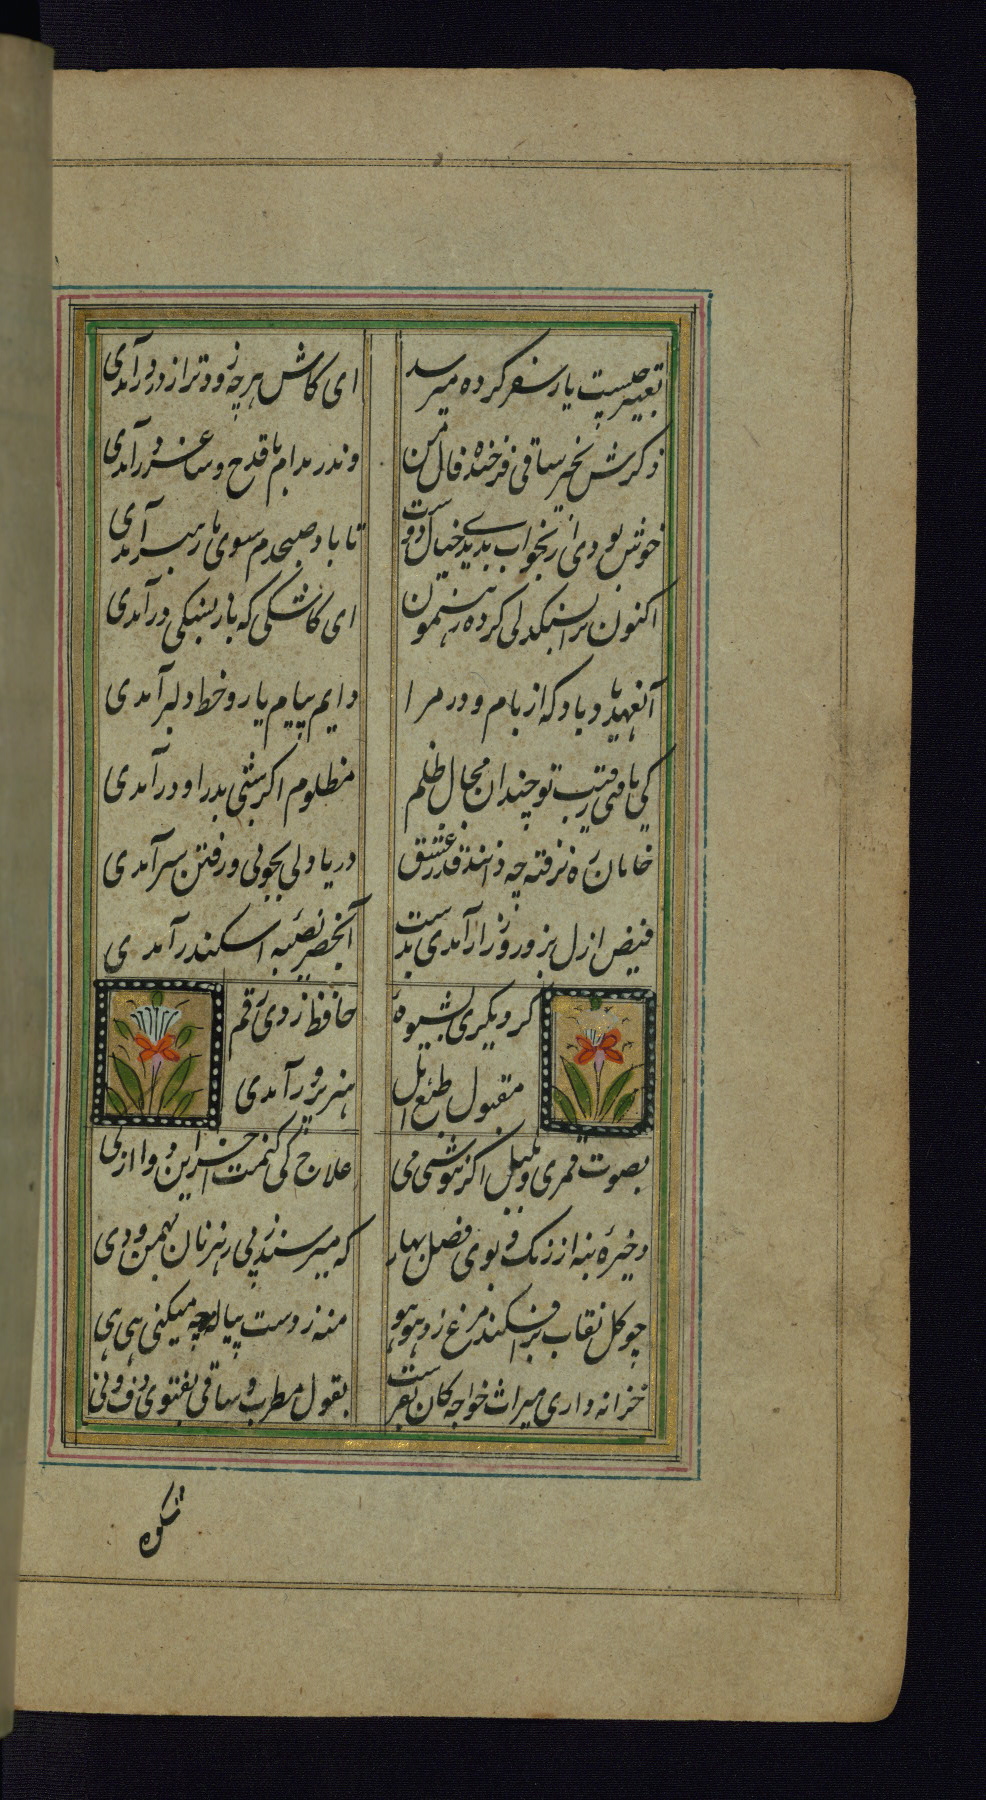 تعبیر چیست یار سفر کرده میرسد ای کاش هر چه زودتر از در درآمدی
ذکرش بخیر ساقی فرخنده فال من وندر مدام با قدح و ساغر درآمدی
خوش بودی ار بخواب بدیدی خیال دوست تا باد صبحدم سوی ما رهبر آمدی
اکنون ترا بسنگدلی کرده رهنمون ای کاشکی که پاش بسنگی درآمدی
آنعهد یاد باد که از بام و در مرا دایم پیام یار و خط دلبر آمدی
کی یافتی رقیب تو چندان مجال ظلم مظلوم اگر شبی بدر داور آمدی
خامان ره نرفته چه دانند قدر عشق دریا دلی بجوی ور فتن سرآمدی
فیض ازل بزور و زر ار آمدی بدست آبخضر نصیبه اسکندر آمدی
گر دیگری بشیوه حافظ زدی رقم
مقبول طبع هنرپرور آمدی
بصوت قمری و بلبل اگر ننوشی می علاج کی کنمت آخر الدوا الکی
ذخیره بنه از رنگ و بوی فصل بهار که میرسند ز پی رهزنان بهمن و دی
چو گل نقاب برافکند مرغ زد هوهو منه ز دست پیاله چه میکنی هی هی
خزانه داری میراث خوارگان کفرست بقول مطرب و ساقی بفتوی دف و نی
شکوه